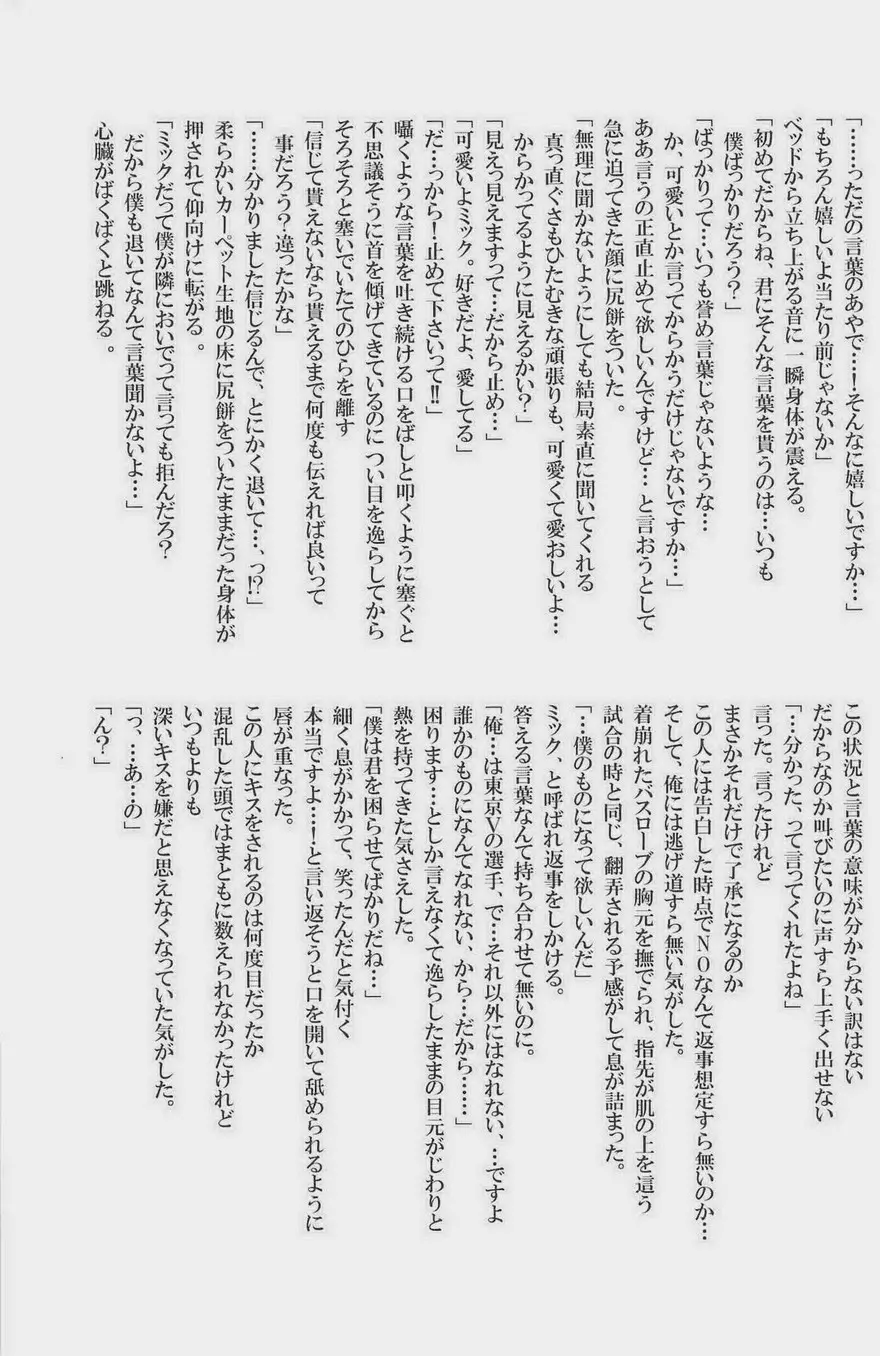 「……っただの言葉のあやで…！そんなに嬉しいですか…」
「もちろん嬉しいよ当たり前じゃないか」
ベッドから立ち上がる音に一瞬身体が震える。
「初めてだからね、君にそんな言葉を貰うのは…いつも
僕ばっかりだろう？」
「ばっかりって…いつも誉め言葉じゃないような…
か、可愛いとか言ってからかうだけじゃないですか…」
ああ言うの正直止めて欲しいんですけど… と言おうとして
急に迫ってきた顔に尻餅をついた。
「無理に聞かないようにしても結局素直に聞いてくれる
真っ直ぐさもひたむきな頑張りも、可愛くて愛おしいよ…
からかってるように見えるかい？」
「見えっ見えますって…だから止め…」
「可愛いよミック。好きだよ、愛してる」
「だ…っから！止めて下さいって!!」
囁くような言葉を吐き続ける口をばしと叩くように塞ぐと
不思議そうに首を傾げてきているのに つい目を逸らしてから
そろそろと塞いでいたてのひらを離す
「信じて貰えないなら貰えるまで何度も伝えれば良いって
事だろう？違ったかな」
「……分かりました信じるんで、とにかく退いて…、っ!?」
柔らかいカーペット生地の床に尻餅をついたままだった身体が
押されて仰向けに転がる。
「ミックだって僕が隣においでって言っても拒んだろ？
だから僕も退いてなんて言葉聞かないよ…」
心臓がばくばくと跳ねる。
この状況と言葉の意味が分からない訳はない
だからなのか叫びたいのに声すら上手く出せない
「…分かった、って言ってくれたよね」
言った。言ったけれど
まさかそれだけで了承になるのか
この人には告白した時点でNOなんて返事想定すら無いのか…
そして、俺には逃げ道すら無い気がした。
着崩れたバスローブの胸元を撫でられ、指先が肌の上を這う
試合の時と同じ、翻弄される予感がして息が詰まった。
「…僕のものになって欲しいんだ」
ミック、と呼ばれ返事をしかける。
答える言葉なんて持ち合わせて無いのに。
「俺…は東京Vの選手、で…それ以外にはなれない、…ですよ
誰かのものになんてなれない、から…だから……」
困ります…としか言えなくて逸らしたままの目元がじわりと
熱を持ってきた気さえした。
「僕は君を困らせてばかりだね…」
細く息がかかって、笑ったんだと気付く
本当ですよ…！と言い返そうと口を開いて舐められるように
唇が重なった。
この人にキスをされるのは何度目だったか
混乱した頭ではまともに数えられなかったけれど
いつもよりも
深いキスを嫌だと思えなくなっていた気がした。
「っ、…あ…の」
「ん？」